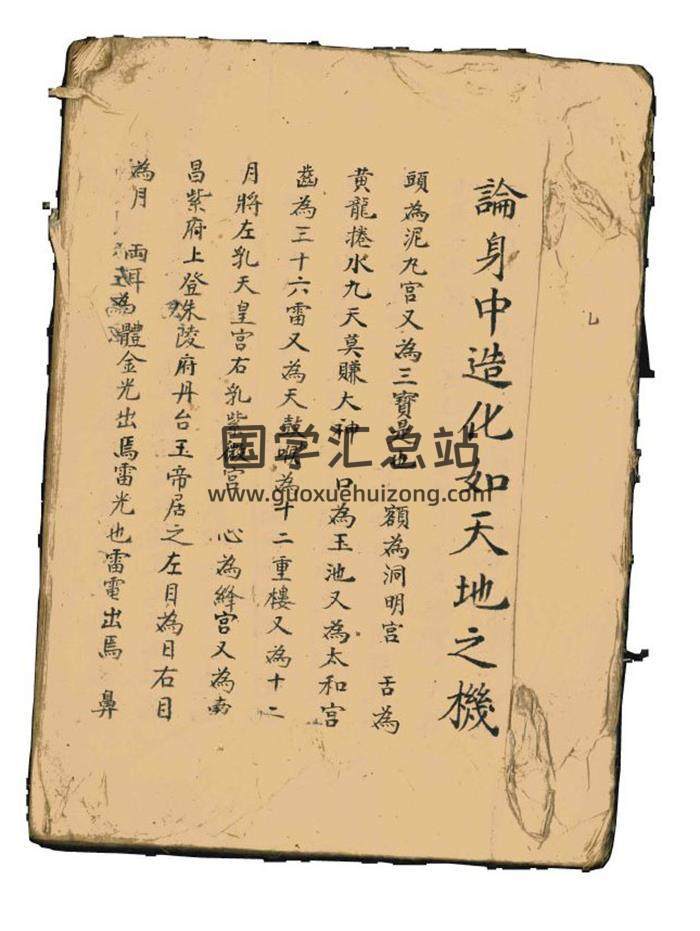 論身中造化如天地之機
頭為泥九宮又為三寶是也 額為洞明宮 舌為
黄龍捲水九天莫賺大神 口為玉池又為太和宮
齒為三十六雷又為天鼓 為十二重樓又為十二
月將左乳天皇宮右乳紫微宮 心為絳宮又為南
昌紫府上登珠陵府丹台玉帝居之左目為日右目
為月 両耳為體金光出焉雷光也雷電出焉 鼻
国学汇总站
www.guoxuehuizong.com